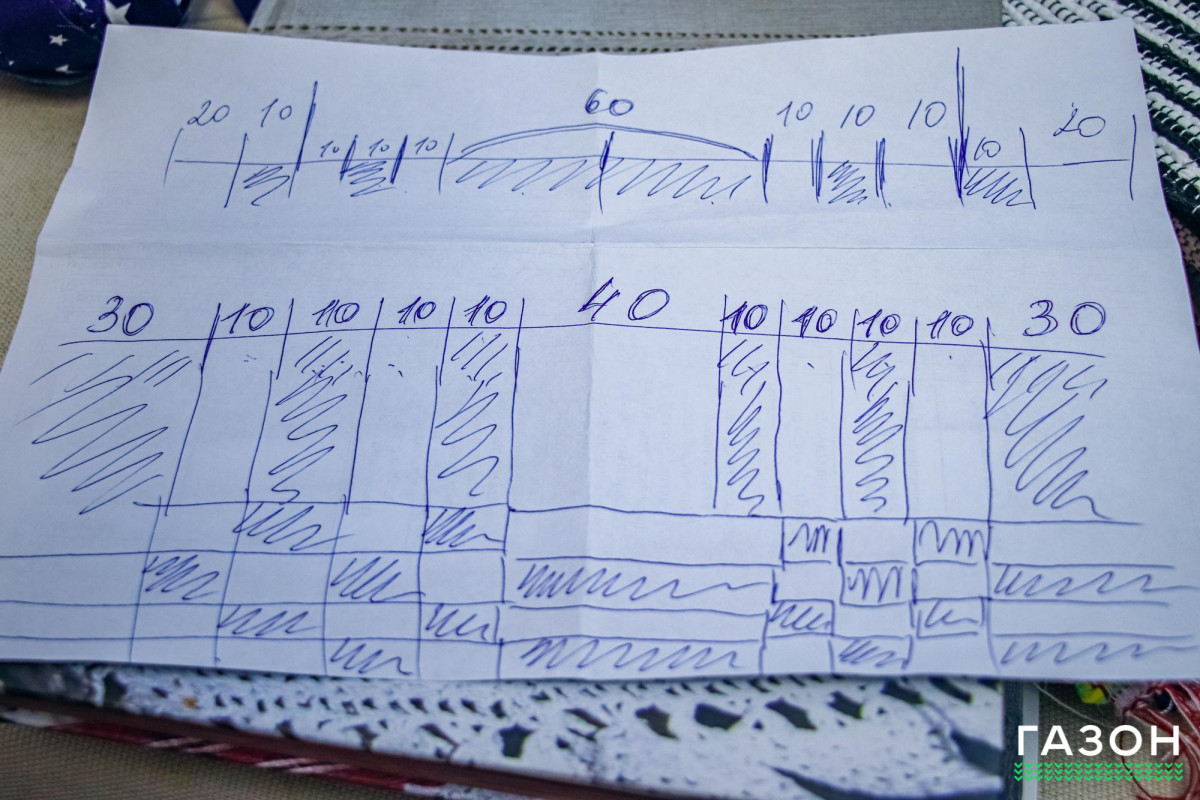 20 10 10 10 10 60 10 10 10 10 20
30 10 10 10 10 40 10 10 10 10 30
ГАЗОН